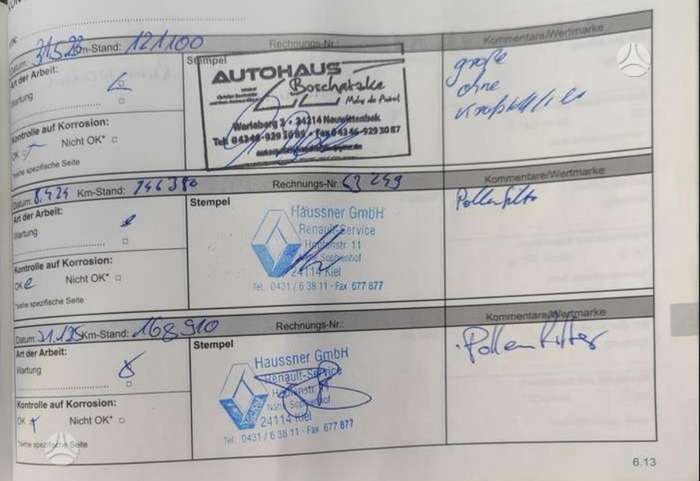 Datum: 31.5.23 Km-Stand: 121100 Rechnungs-Nr.: Kommentare/Wertmarke
Art der Arbeit:
Wartung
Kontrolle auf Korrosion:
OK Nicht OK* □
*siehe spezifische Seite
Stempel
AUTOHAUS
Borchatzke
Warleberg 2 · 24214 Neuwittenbek
Tel. 04346-929 30 86 · Fax 04346-929 30 87
große
ohne
Datum: 8.4.24 Km-Stand: 146380 Rechnungs-Nr. 63249 Kommentare/Wertmarke
Art der Arbeit:
Wartung
Kontrolle auf Korrosion:
OK Nicht OK* □
*siehe spezifische Seite
Stempel
Haussner GmbH
Renault-Service
Hopfenstr. 11
Nähe Sophienhof
24114 Kiel
Tel. 0431 / 6 38 11 · Fax 677 877
Pollenfilter
Datum: 21.1.25 Km-Stand: 168910 Rechnungs-Nr.: Kommentare/Wertmarke
Art der Arbeit:
Wartung
Kontrolle auf Korrosion:
OK Nicht OK* □
*siehe spezifische Seite
Stempel
Haussner GmbH
Renault-Service
Hopfenstr. 11
Nähe Sophienhof
24114 Kiel
Tel. 0431 / 6 38 11 · Fax 677 877
Pollenfilter
6.13